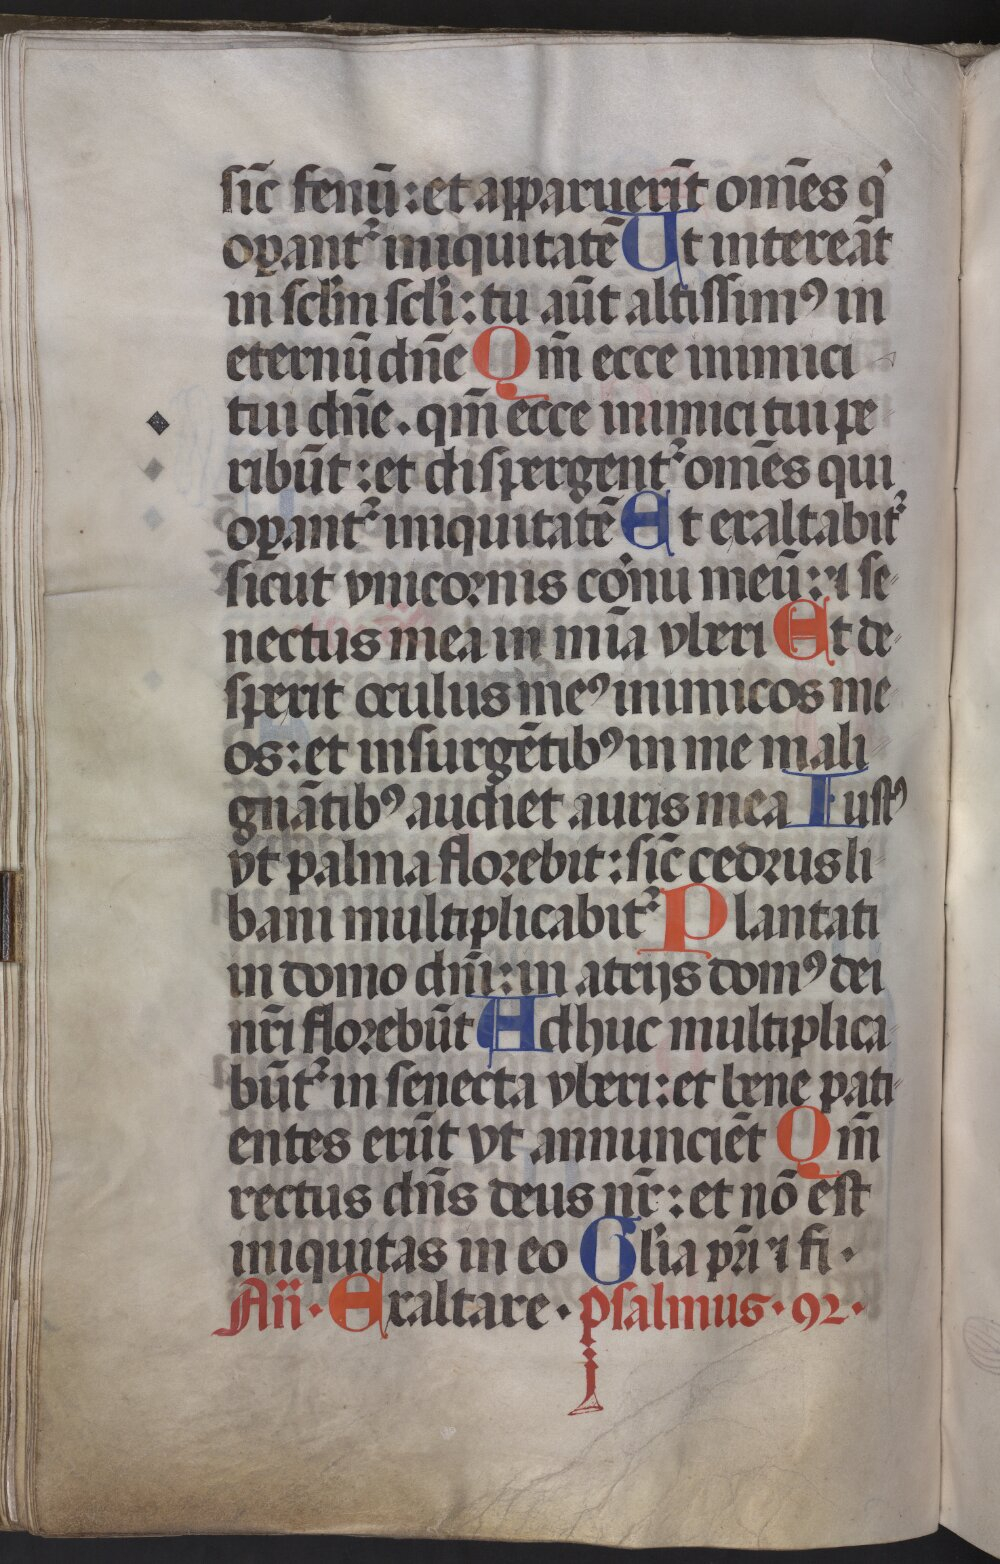 sic̄ fenū: et apparuerūt om̄es qⁱ
oꝑantᷣ iniquitatē Ut intereāt
in sclm̄ scli: tu aūt altissimꝰ in
eternū dn̄e Qm̄ ecce inimici
tui dn̄e. qm̄ ecce inimici tui pe
ribūt: et dispergentᷣ om̄es qui
oꝑantᷣ iniquitatē Et exaltabitᷣ
sicut vnicornis cornu meū: ⁊ se-
nectus mea in mīa vberi Et de-
sperit oculus meꝰ inimicos me
os: et insurgētibꝰ in me mali
gnātibꝰ audiet auris mea Iustꝰ
vt palma florebit: sic̄ cedrus li
bani multiplicabitᷣ Plantati
in domo dn̄i: in atrijs domꝰ dei
nr̄i florebūt Adhuc multiplica
būtᷣ in senecta vberi: et bene pati-
entes erūt vt annunciēt Qm̄
rectus dn̄s deus nr̄: et nō est
iniquitas in eo Glia pr̄i ⁊ fi.
An̄. Exaltare. psalmus. 92.